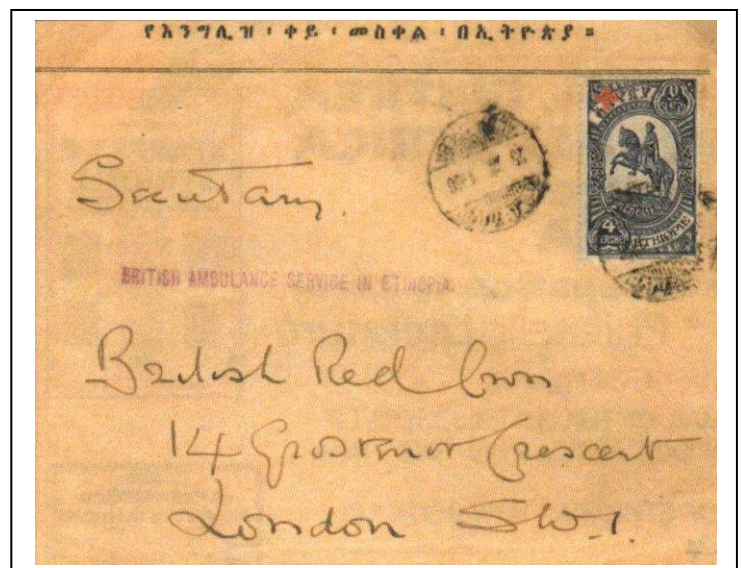 የእንግሊዝ ፡ ቀይ ፡ መስቀል ፡ በኢትዮጵያ ።
4
ETHIOPIE
Secretary.
BRITISH AMBULANCE SERVICE IN ETHIOPIA.
British Red Cross
14 Grosvenor Crescent
London S.W.1.